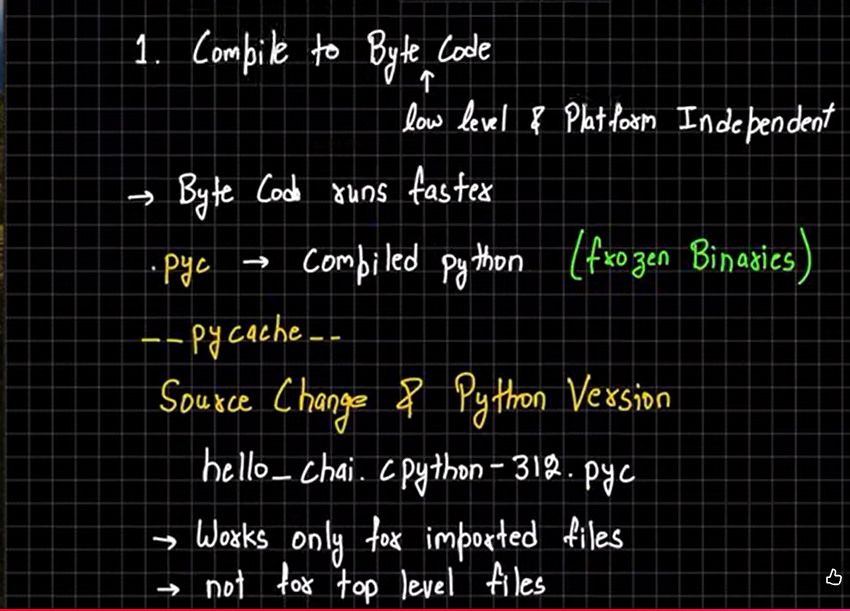 1. Compile to Byte Code
↑
low level & Platform Independent
→ Byte Code runs faster
.pyc → compiled python (frozen Binaries)
--pycache--
Source Change & Python Version
hello_chai.cpython-312.pyc
→ Works only for imported files
→ not for top level files